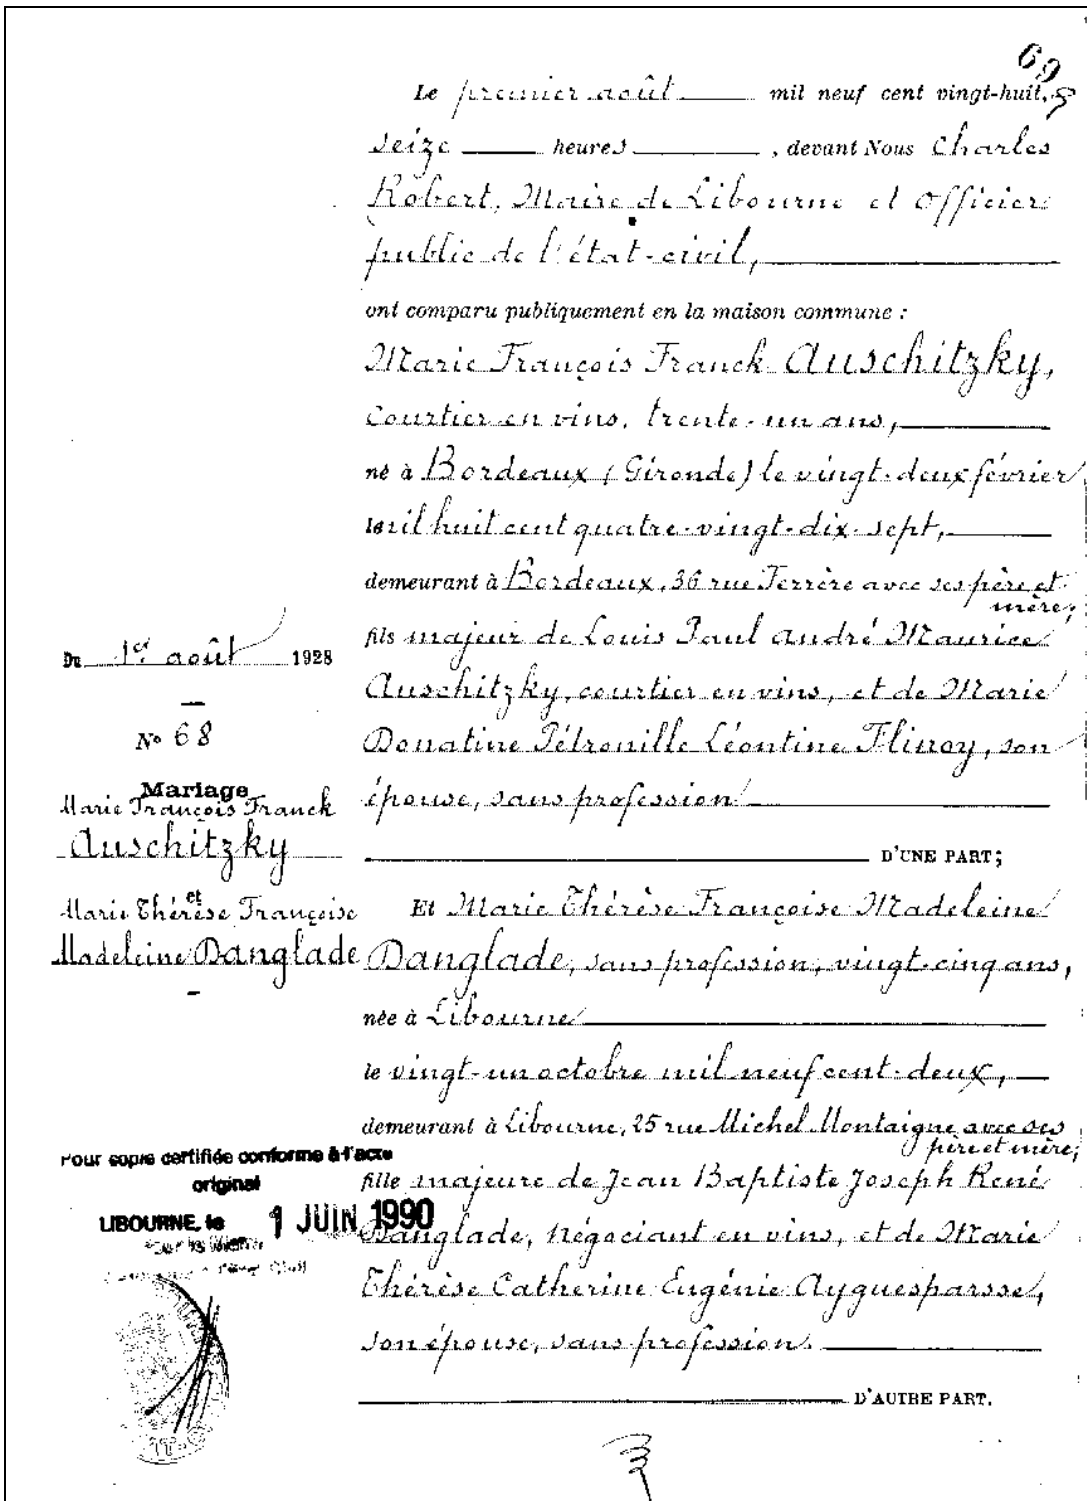 69
Le premier août mil neuf cent vingt-huit, à
seize heures, devant Nous Charles
Robert, Maire de Libourne et Officier
public de l'état-civil,
ont comparu publiquement en la maison commune :
Marie François Franck Auschitzky,
Courtier en vins, trente-un ans,
né à Bordeaux (Gironde) le vingt-deux février
mil huit cent quatre-vingt-dix-sept,
demeurant à Bordeaux, 36 rue Ferrère avec ses père et
mère;
fils majeur de Louis Paul André Maurice
Auschitzky, courtier en vins, et de Marie
Donatine Pétronille Léontine Flinoy, son
épouse, sans profession
D'UNE PART;
Et Marie Thérèse Françoise Madeleine
Danglade, sans profession, vingt-cinq ans,
née à Libourne
le vingt-un octobre mil neuf cent-deux,
demeurant à Libourne, 25 rue Michel Montaigne avec ses
père et mère;
fille majeure de Jean Baptiste Joseph René
Danglade, négociant en vins, et de Marie
Thérèse Catherine Eugénie Ayguesparsse,
son épouse, sans profession.
D'AUTRE PART.
Du 1er août 1928
No 68
Mariage
Marie François Franck
Auschitzky
et
Marie Thérèse Françoise
Madeleine Danglade
Pour copie certifiée conforme à l'acte
original
LIBOURNE, le 1 JUIN 1990